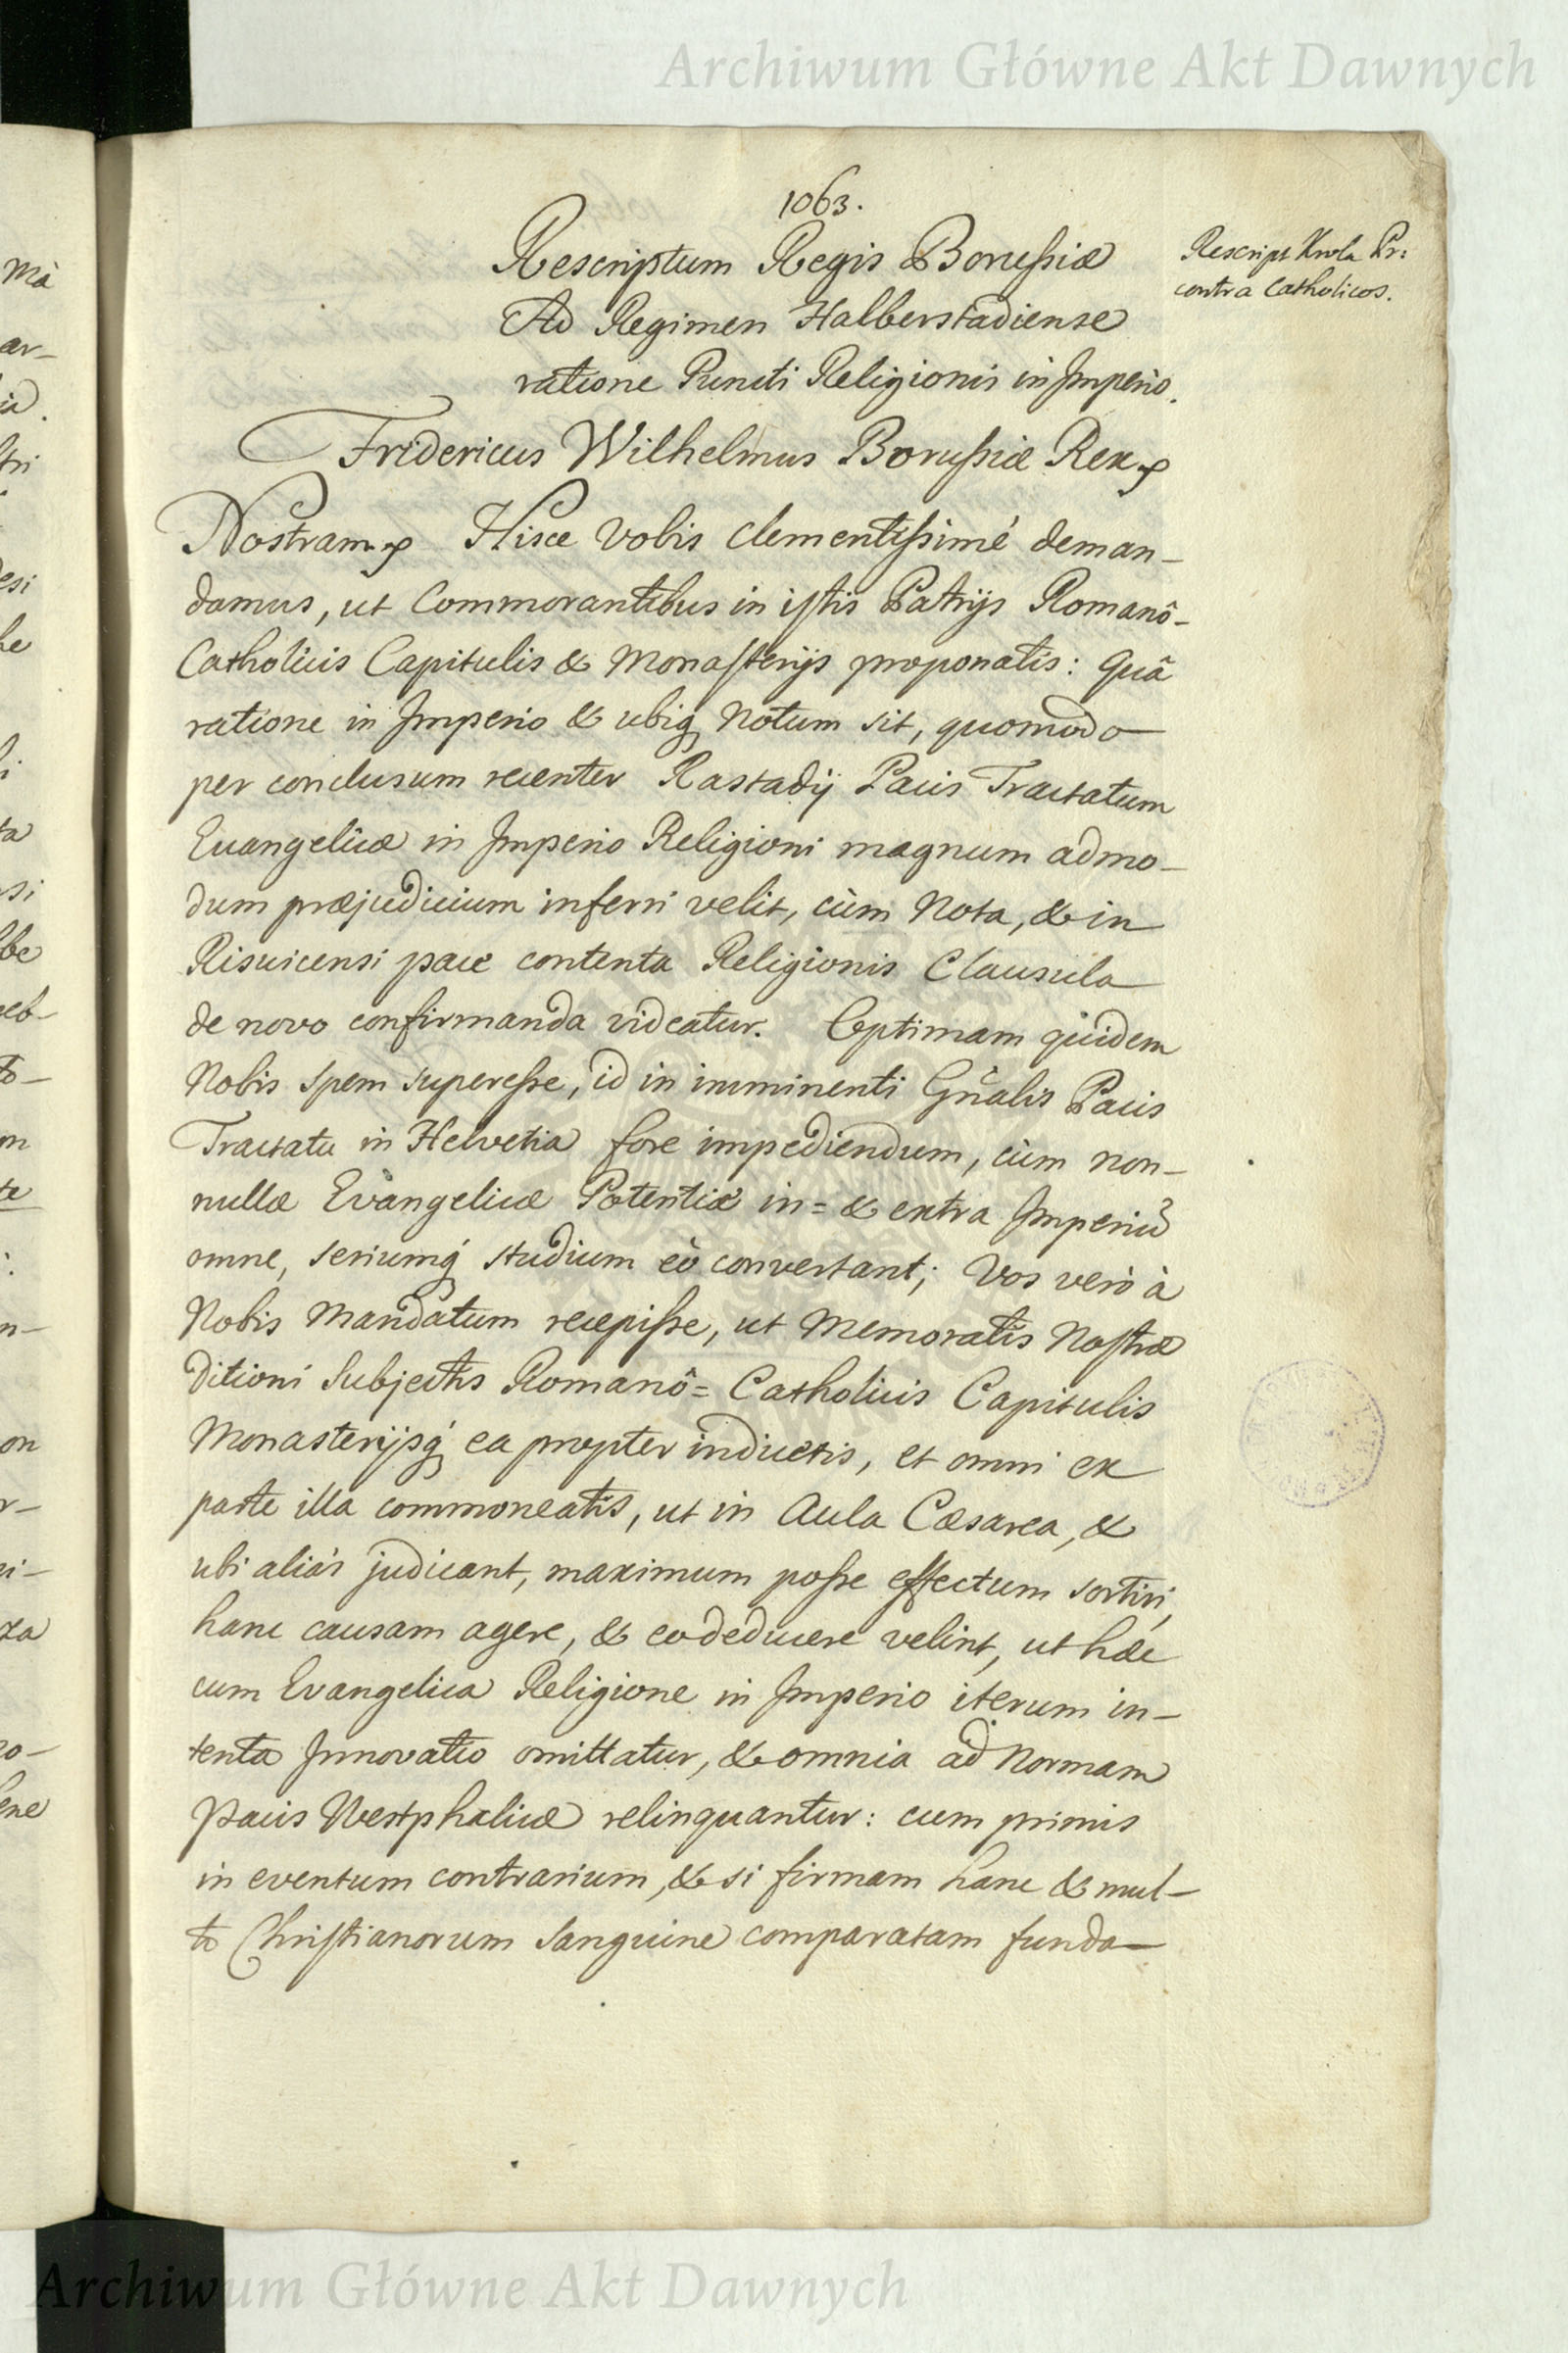 Archiwum Główne Akt Dawnych
1063.
Rescriptum Regis Borussiæ
Ad Regimen Halberstadiense
ratione Puncti Religionis in Imperio.
Rescript Krola Pr:
contra Catholicos.
Fridericus Wilhelmus Borussiæ Rex
Nostram Hisce Vobis Clementissimè deman-
damus, ut Commorantibus in istis Patrijs Romanô-
Catholicis Capitulis & Monasterijs proponatis: Quâ
ratione in Imperio & ubiq notum sit, quomodo
per conclusum recenter Rastadij Pacis Tractatum
Evangelicæ in Imperio Religioni magnum admo-
dum præjudicium inferri velit, cùm Nota, & in
Risvicensi pace contenta Religionis Clausula
de novo confirmanda videatur. Optimam quidem
Nobis Spem superesse, id in imminenti Gñalis Pacis
Tractatu in Helvetia fore impediendum, cùm non-
nullæ Evangelicæ Potentiæ in= & extra Imperiũ
omne, seriumq studium eò convertant; Vos verò à
Nobis Mandatum recepisse, ut Memoratis Nostræ
Ditioni Subjectis Romanô= Catholicis Capitulis
Monasterijsq ea propter inductis, et omni ex
parte illa commoneatis, ut in Aula Cæsarea, &
ubi aliàs judicant, maximum posse effectum sortiri,
hanc causam agere, & eo deducere velint, ut hæc
cum Evangelica Religione in Imperio iterum in-
tenta Innovatio omittatur, & omnia ad Normam
Pacis Westphalicæ relinquantur: cum primis
in eventum contrarium, & si firmam hanc & mul-
to Christianorum Sanguine comparatam funda-
Archiwum Główne Akt Dawnych